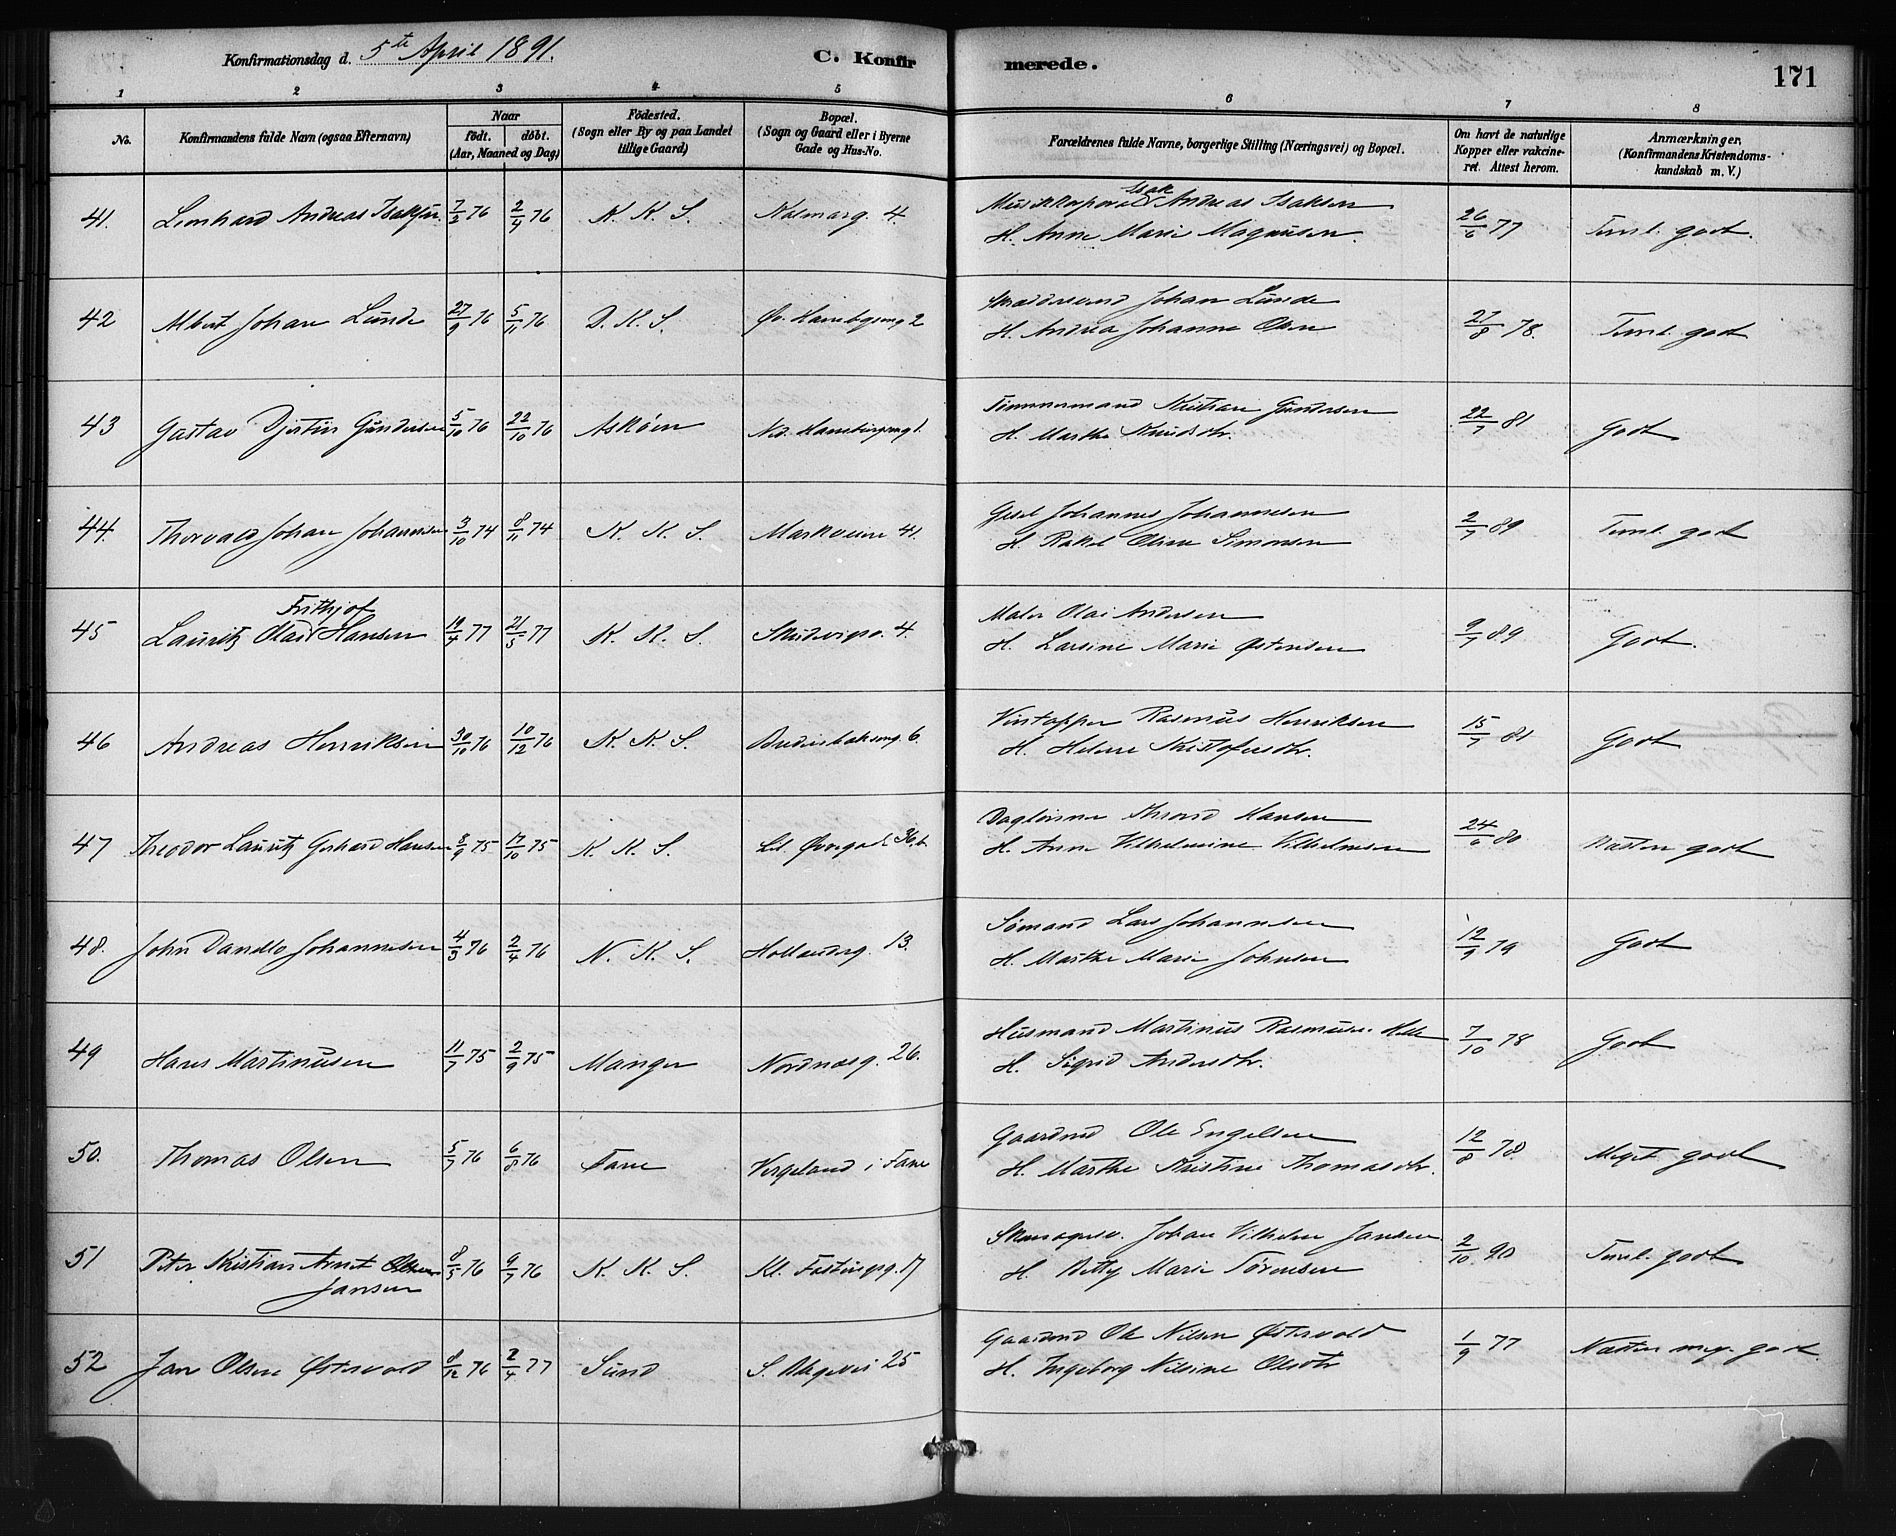 Konfirmationsdag d. 5te April 1891.
C. Konfirmerede.
171
1 2 3 4 5 6 7 8
No.
Konfirmandens fulde Navn (ogsaa Efternavn)
Naar
født. døbt.
(Aar, Maaned og Dag)
Fødested.
(Sogn eller By og paa Landet
tillige Gaard)
Bopæl.
(Sogn og Gaard eller i Byerne
Gade og Hus-No.
Forældrenes fulde Navne, borgerlige Stilling (Næringsvei) og Bopæl.
Om havt de naturlige
Kopper eller vakcine-
ret. Attest herom.
Anmærkninger,
(Konfirmandens Kristendoms-
kundskab m. V.)
41. Leonhard Andreas Isaksen 7/2 76 2/4 76 K. K. S. Kalmarg. 4 Isak Andreas Isaksen 26/6 77 Teml. godt.
H. Anne Marie Magnusen.
42 Albert Johan Lunde 27/9 76 5/11 76 D. K. S. Øv. Hamburgsmg 2 Johan Lunde 27/8 78. Teml. godt
H. Andrea Johanna Olsen
43 Gustav Gundersen 5/10 76 22/10 76 Askøen Ned. Hamburgsmg 1. Tømmermand Kristian Gundersen 22/7 81 Godt
H. Marthe Knudsdtr.
44. Thorvald Johan Johannesen 3/10 74 8/11 74 K. K. S. Markveien 41. Johannes Johannesen 2/7 89 Teml. godt
H. Rakel Oline Simonsen
45 Lauritz Olai Frithjof Hansen 10/4 77 21/5 77 K. K. S. Skudevigsv. 4. Maler Olai Andersen 9/7 89 Godt.
H. Larsine Marie Østensen
46 Andreas Henriksen 30/10 76 10/12 76 K. K. S. 6. Vintapper Rasmus Henriksen 15/7 81 Godt
H. Helene Kristofersdtr.
47 Theodor Lauritz Gerhard Hansen 8/9 75 17/10 75 K. K. S. Lil. Øvregade 36b Daglønner Hansen 24/6 80 Næsten godt
H. Anne Vilhelmine Vilhelmsen
48. John Danello Johannesen 4/3 76 2/4 76 N. K. S. Hollenderg. 13. Sømand Lars Johannesen 12/9 79 Godt
H. Marthe Marie Johnsen
49 Hans Martinusen 11/7 75 2/9 75 Manger Nordnæsg. 26. Husmand Martinus Rasmusen 7/10 78 Godt
H. Sigrid Andersdtr.
50. Thomas Olsen 5/7 76 6/8 76 Fane Vergeland i Fane Gaardmd Ole Engelsen 12/8 78. Meget godt
H. Marthe Kristine Thomasdtr.
51 Peter Kristian Arnet Olsen 8/5 76 9/7 76 K. K. S. Kl. Fostervigsg. 17 Johan Vilhelm Jansen 2/10 90 Teml. godt
Jansen H. Betty Marie Sørensen
52 Jan Olsen Østervold 8/12 76 2/4 77 Sund S. Blegevei 25 Gaardmd Ole Nilsen Østervold 1/9 77 Næsten meg. godt.
H. Ingeborg Nilsine Olsdtr